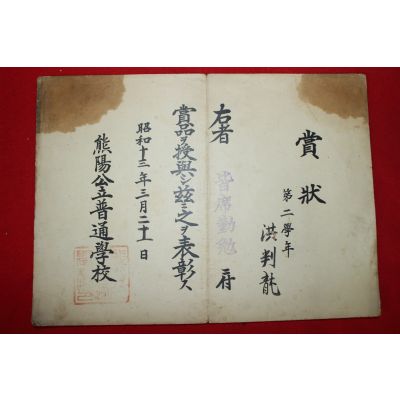 賞狀
第二學年
洪判龍
右者皆席勤勉ニ付
賞品ヲ授與シ玆ニ之ヲ表彰ス
昭和十三年三月二十一日
熊陽公立普通學校